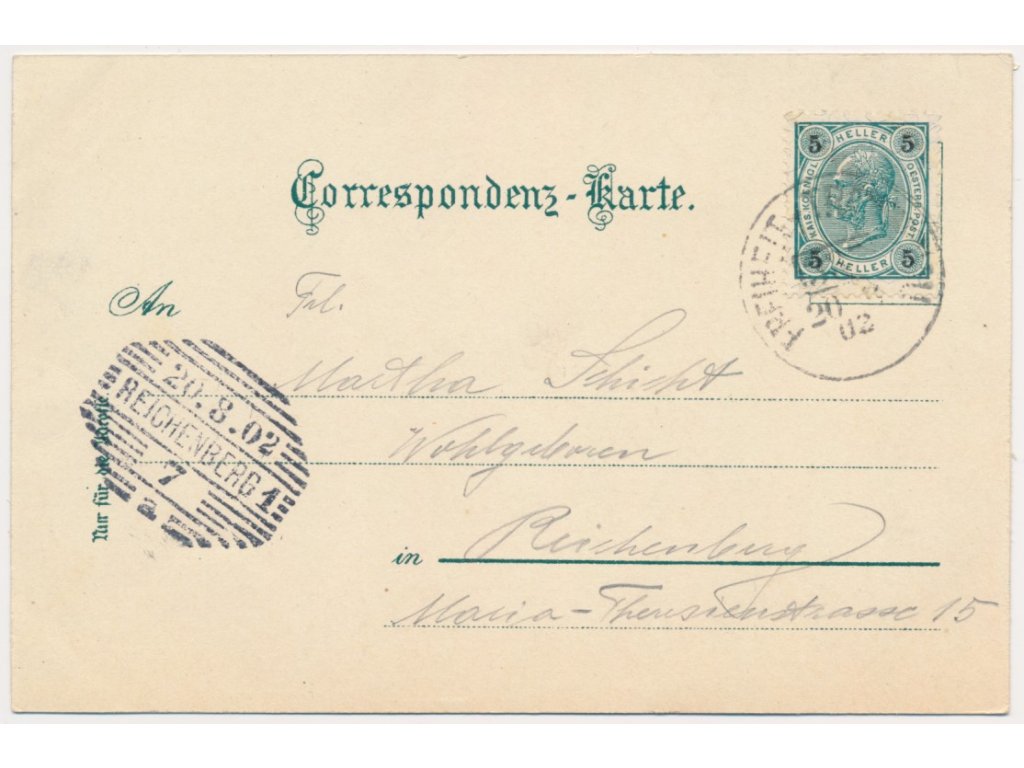 Correspondenz-Karte.
5 HELLER 5
KAIS. KOENIGL. OESTERR. POST.
5 HELLER 5
An
Frl.
FREIHEIT
20
02
Martha Schicht
20.8.02
REICHENBERG 1
7
a
Wohlgeboren
Nur für die Adresse
in Reichenberg
Maria-Theresienstrasse 15